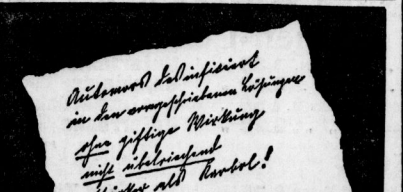 Automors desinfiziert
in den vorgeschriebenen Lösungen
ohne giftige Wirkung
nicht übelriechend
stärker als Karbol!